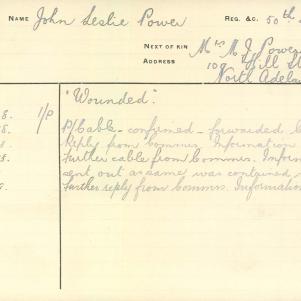 NAME John Leslie Power REG. &C. 50th
NEXT OF KIN Mrs M J Power
ADDRESS 109 Hill St
North Adela
"Wounded."
8. 1/P P/Cable - confined - forwarded
Reply from Commrs. Information
Further cable from Commrs. Inform
sent out as same was contained
Further reply from Commrs. Information